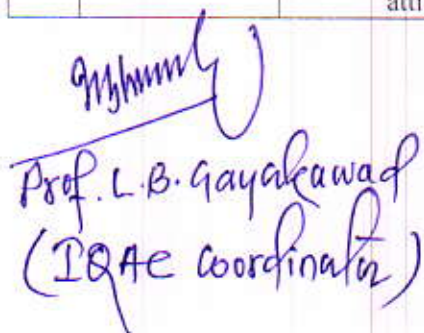 atti
Prof. L.B. Gayakawad
(IQAC Coordinator)